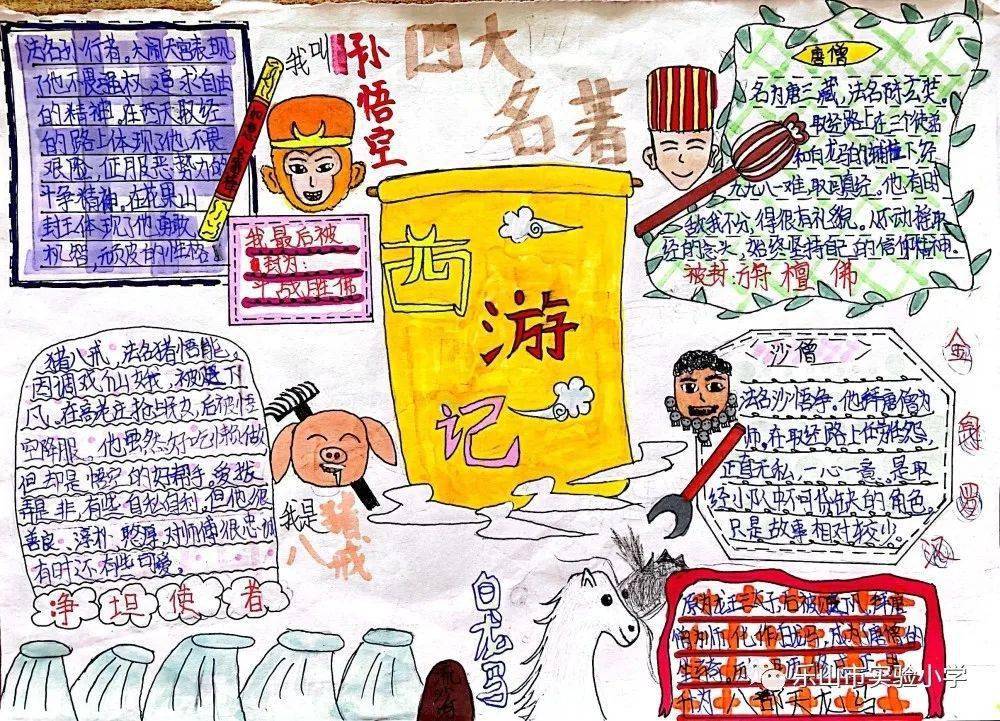 四大
名著
我叫
孙悟空
法名孙行者。大闹天宫表现
了他不畏强权、追求自由
的精神。在西天取经
的路上体现了他不畏
艰险，征服恶势力的
斗争精神。在花果山
封王体现了他勇敢、
机智，顽皮的性格。
我最后被
封为：
斗战胜佛
唐僧
名为唐三藏，法名陈玄奘。
取经路上在三个徒弟
和白龙马的辅佐下经
九九八一难，取回真经。他有时
敌我不分，得很有礼貌。从不动摇取
经的念头，始终坚持自己的信仰精神。
被封：旃檀佛
西
游
记
猪八戒，法名猪悟能。
因调戏仙娥，被贬下
凡。在高老庄抢占民女，后被悟
空降服。他虽然好吃懒做
但却是悟空的好帮手，爱拨
弄是非，有些自私自利。但他很
善良、淳朴、憨厚，对师傅很忠诚
有时还有些可爱。
净坛使者
我是
猪八戒
沙僧
法名沙悟净。他拜唐僧为
师。在取经路上任劳任怨，
正直无私，一心一意，是取
经小队中不可或缺的角色。
只是故事相对较少。
金身罗汉
白龙马
僧为师化作白龙马，成为唐僧的
八部天龙马
乐山市实验小学